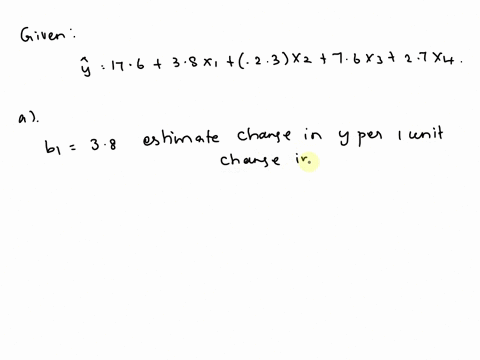 Given:
ŷ = 17.6 + 3.8x1 + (.2.3)x2 + 7.6x3 + 2.7x4.
a).
b1 = 3.8 estimate change in y per 1 unit
change in.